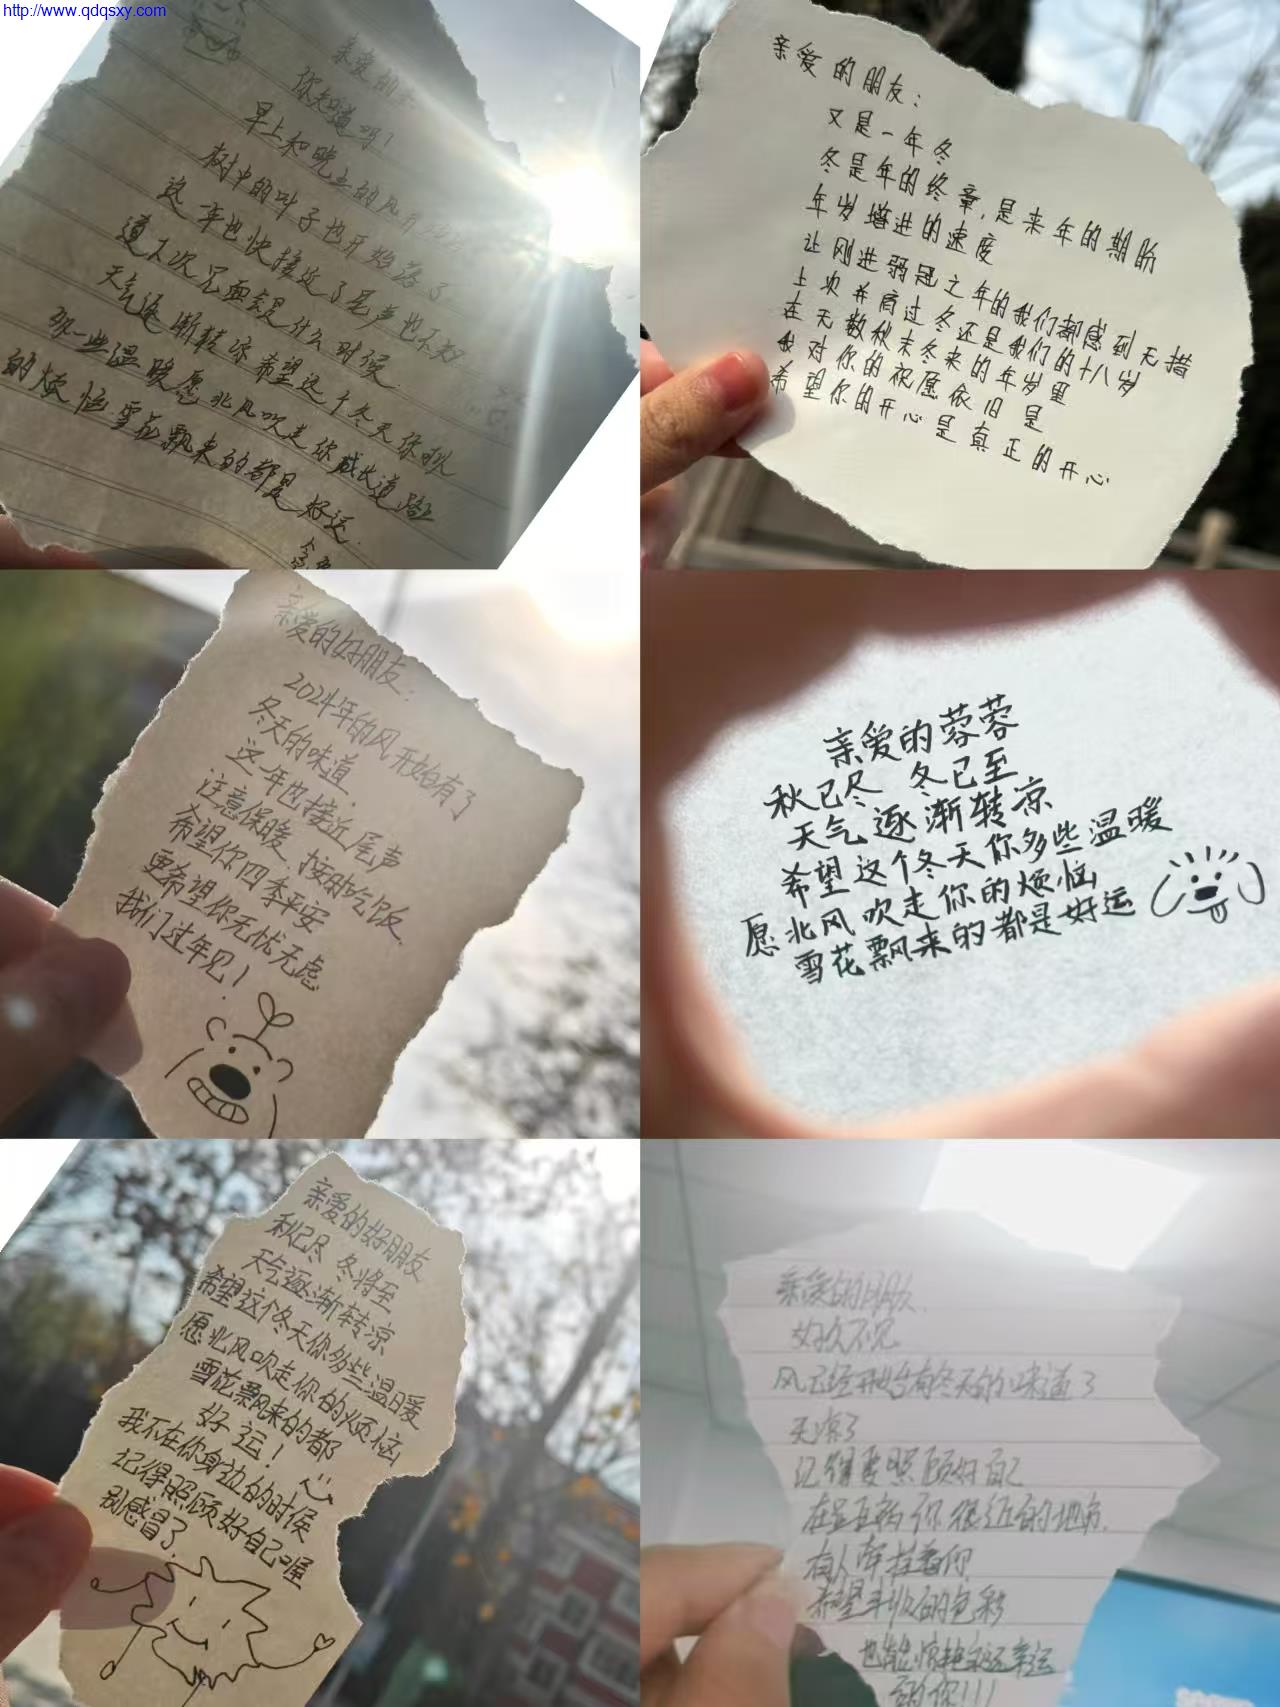 http://www.qdqsxy.com
亲爱的
你知道吗!
早上和晚上的风开始
树中的叶子也开始落了
这一年也快接近了尾声也不知
道下次见面会是什么时候.
天气逐渐转凉希望这个冬天你多
一些温暖愿北风吹走你成长道路上
的烦恼雪花飘来的都是好运.
亲爱的朋友:
又是一年冬
冬是年的终章,是来年的期盼
年岁增进的速度
让刚进弱冠之年的我们都感到无措
上次并肩过冬还是我们的十八岁
在无数秋末冬来的年岁里
我对你的祝愿依旧是
希望你的开心是真正的开心
亲爱的好朋友:
2024年的风开始有了
冬天的味道
这一年也接近尾声
注意保暖 按时吃饭
希望你四季平安
更希望你无忧无虑
我们过年见!
亲爱的蓉蓉
秋已尽 冬已至
天气逐渐转凉
希望这个冬天你多些温暖
愿北风吹走你的烦恼
雪花飘来的都是好运
亲爱的好朋友
秋已尽 冬将至
天气逐渐转凉
希望这个冬天你多些温暖
愿北风吹走你的烦恼
雪花飘来的都
好运!
我不在你身边的时候
记得照顾好自己喔
别感冒了
亲爱的朋友.
好久不见
风已经开始有冬天的味道了
天凉了
记得要照顾好自己
在与你很近的地方.
有人牵挂着你
希望丰收的色彩
也能惊艳永远幸运
的你!!!